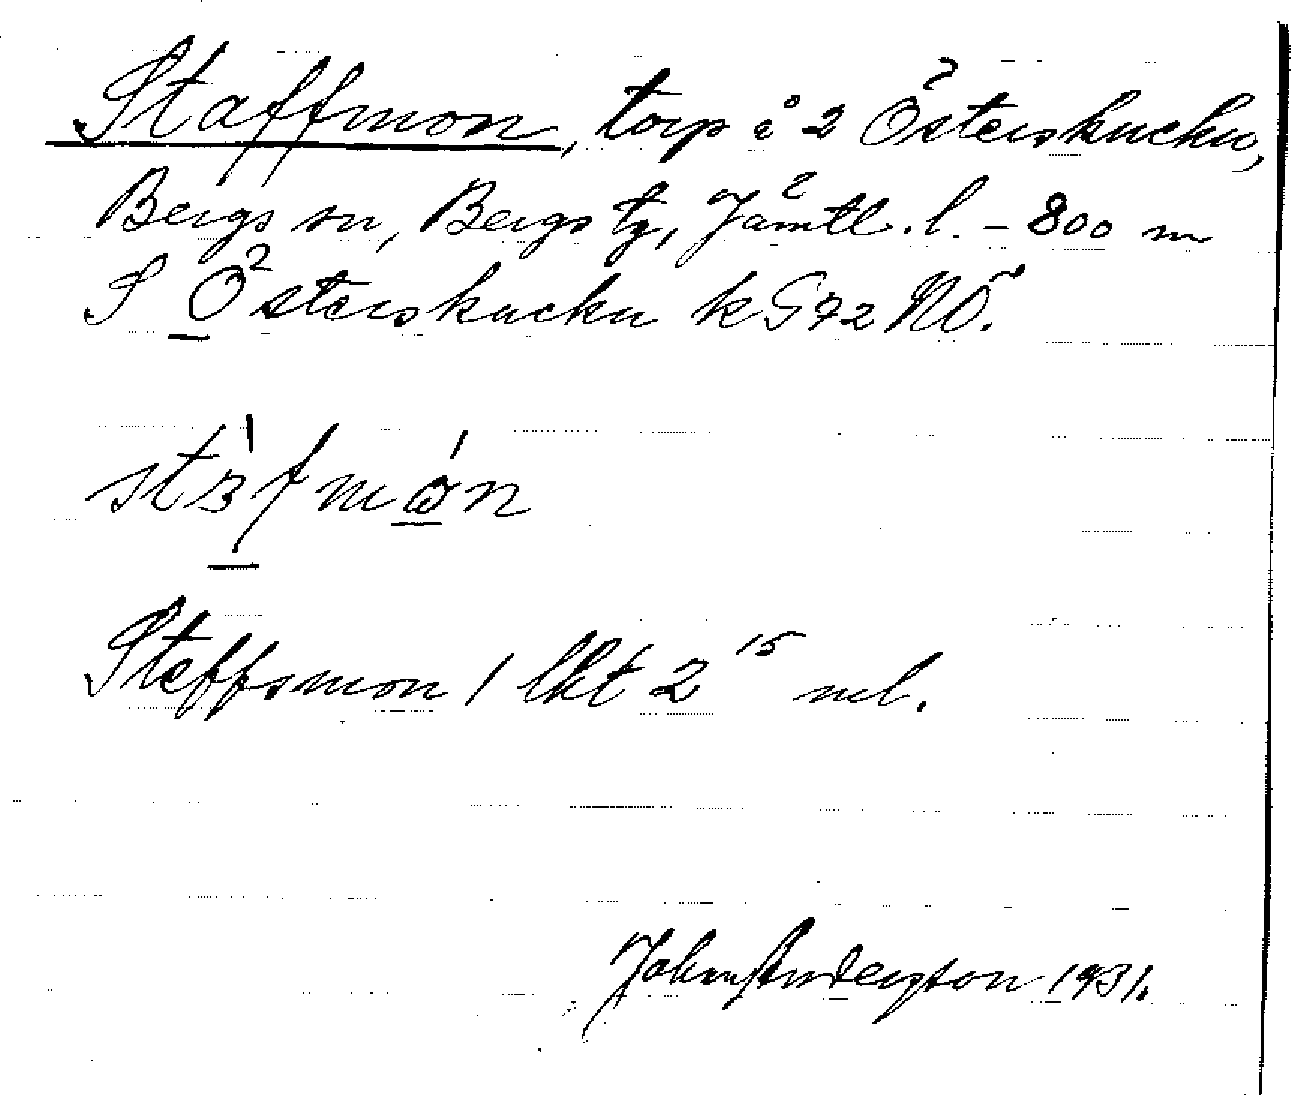 Staffmon, torp i 2 Österskucku,
Bergs sn, Bergs tg, Jämtl. l. – 800 m
S Österskucku k G 72 NÖ.
Steffsmon / lkt 2 15 ml.
John Andersson 1931.